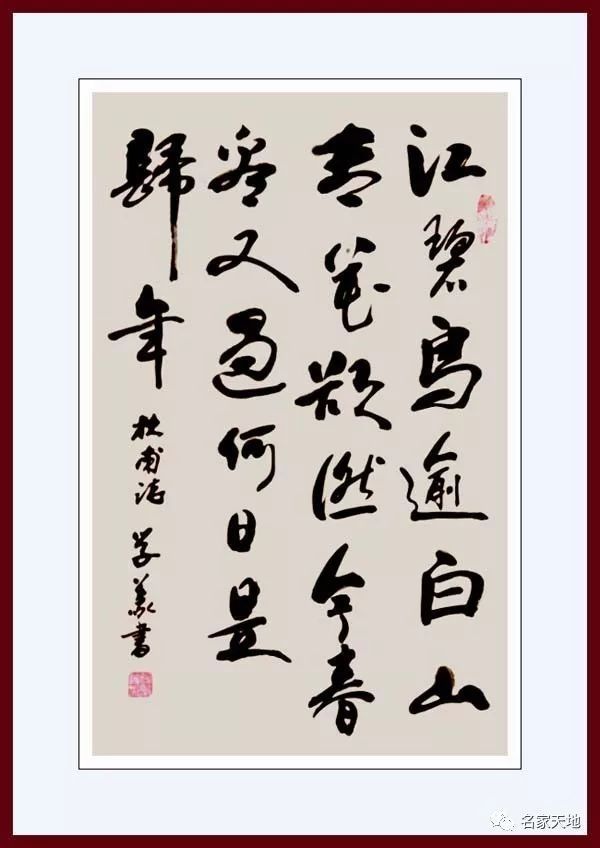 江碧鳥逾白山
青花欲燃今春
看又過何日是
歸年
杜甫詩 学義書
名家天地